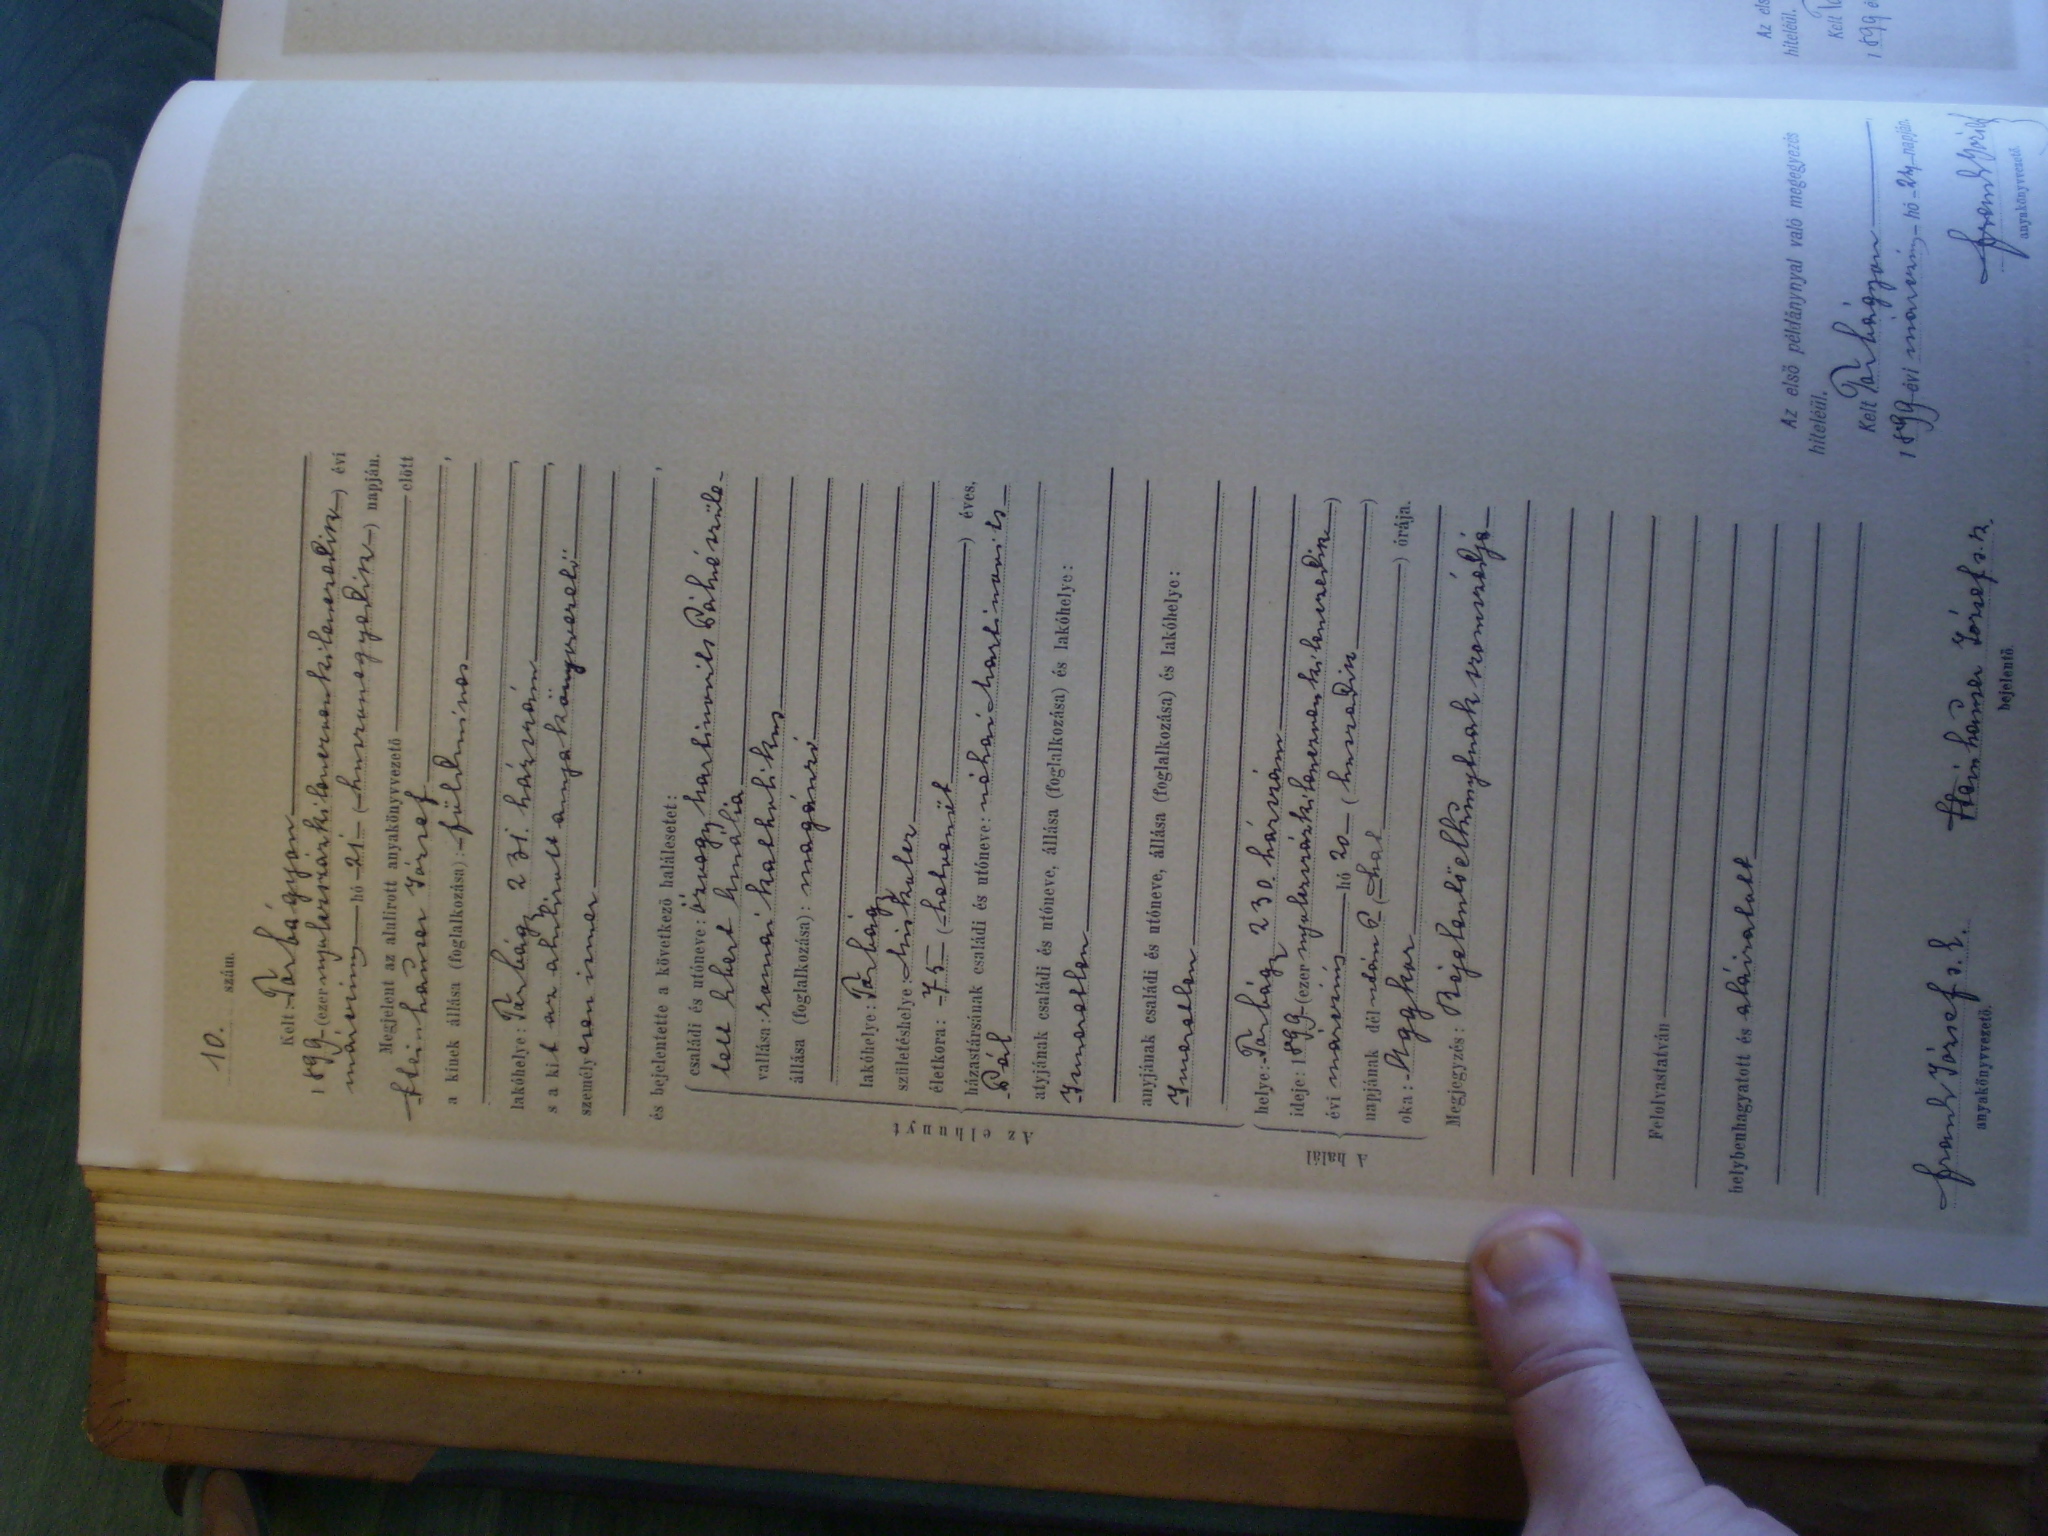 10. szám.
Kelt: Torbágyon
1899 (ezernyolcszázkilencvenkilencedik) évi
márczius hó 21 (huszonegyedik) napján.
Megjelent az alulirott anyakönyvvezető előtt
Steinhauser József
a kinek állása (foglalkozása): földmives
lakóhelye: Torbágy 231. házszám,
s a kit az alulirott anyakönyvvezető
személyesen ismer
és bejelentette a következő halálesetet:
Az elhunyt
családi és utóneve: özvegy Martinovits Pálné szüle-
tett Ebert Amália
vallása: romai katholikus
állása (foglalkozása): magánzó
lakóhelye: Torbágy
születéshelye:
életkora: 75 (hetvenöt) éves,
házastársának családi és utóneve: néhai Martinovits
Pál
atyjának családi és utóneve, állása (foglalkozása) és lakóhelye:
Ismeretlen
anyjának családi és utóneve, állása (foglalkozása) és lakóhelye:
Ismeretlen
A halál
helye: Torbágy 230. házszám
ideje: 1899 (ezernyolcszázkilencvenkilencedik)
évi márczius hó 20 (huszadik)
napjának dél után 6 (hat) órája.
oka: Aggkor
Megjegyzés: Bejelentő elhunytnak szomszédja
Felolvastatván
helybenhagyatott és aláiratott
Frank József s. k.
anyakönyvvezető.
Steinhauser József s. k.
bejelentő.
Az első példánynyal való megegyezés
hiteléül.
Kelt Torbágyon
1899 évi márczius hó 24 napján.
Frank József
anyakönyvvezető.
Az els
hiteléül.
Kelt
1899 é